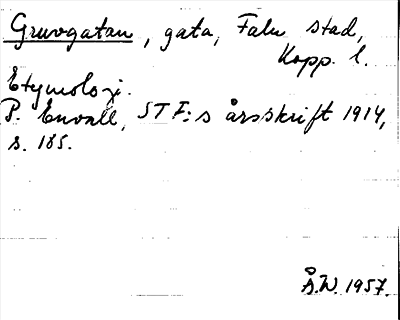 Gruvgatan, gata, Falu stad,
Kopp. l.
Etymologi.
P. Envall, STF:s årsskrift 1914,
s. 185.
Å.W. 1957.